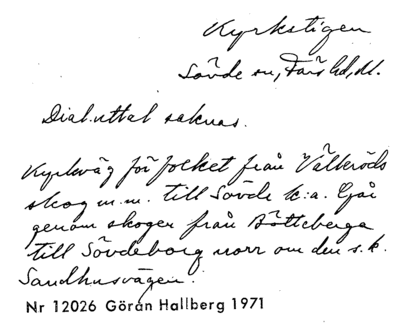 Kyrkstigen
Sövde sn, Färs hd, M.
Dial.uttal saknas.
Kyrkväg för folket från Välteröds
skog m.m. till Sövde k:a. Går
genom skogen från Bötteberga
till Sövdeborg norr om den s.k.
Sandhusvägen.
Nr 12026 Göran Hallberg 1971